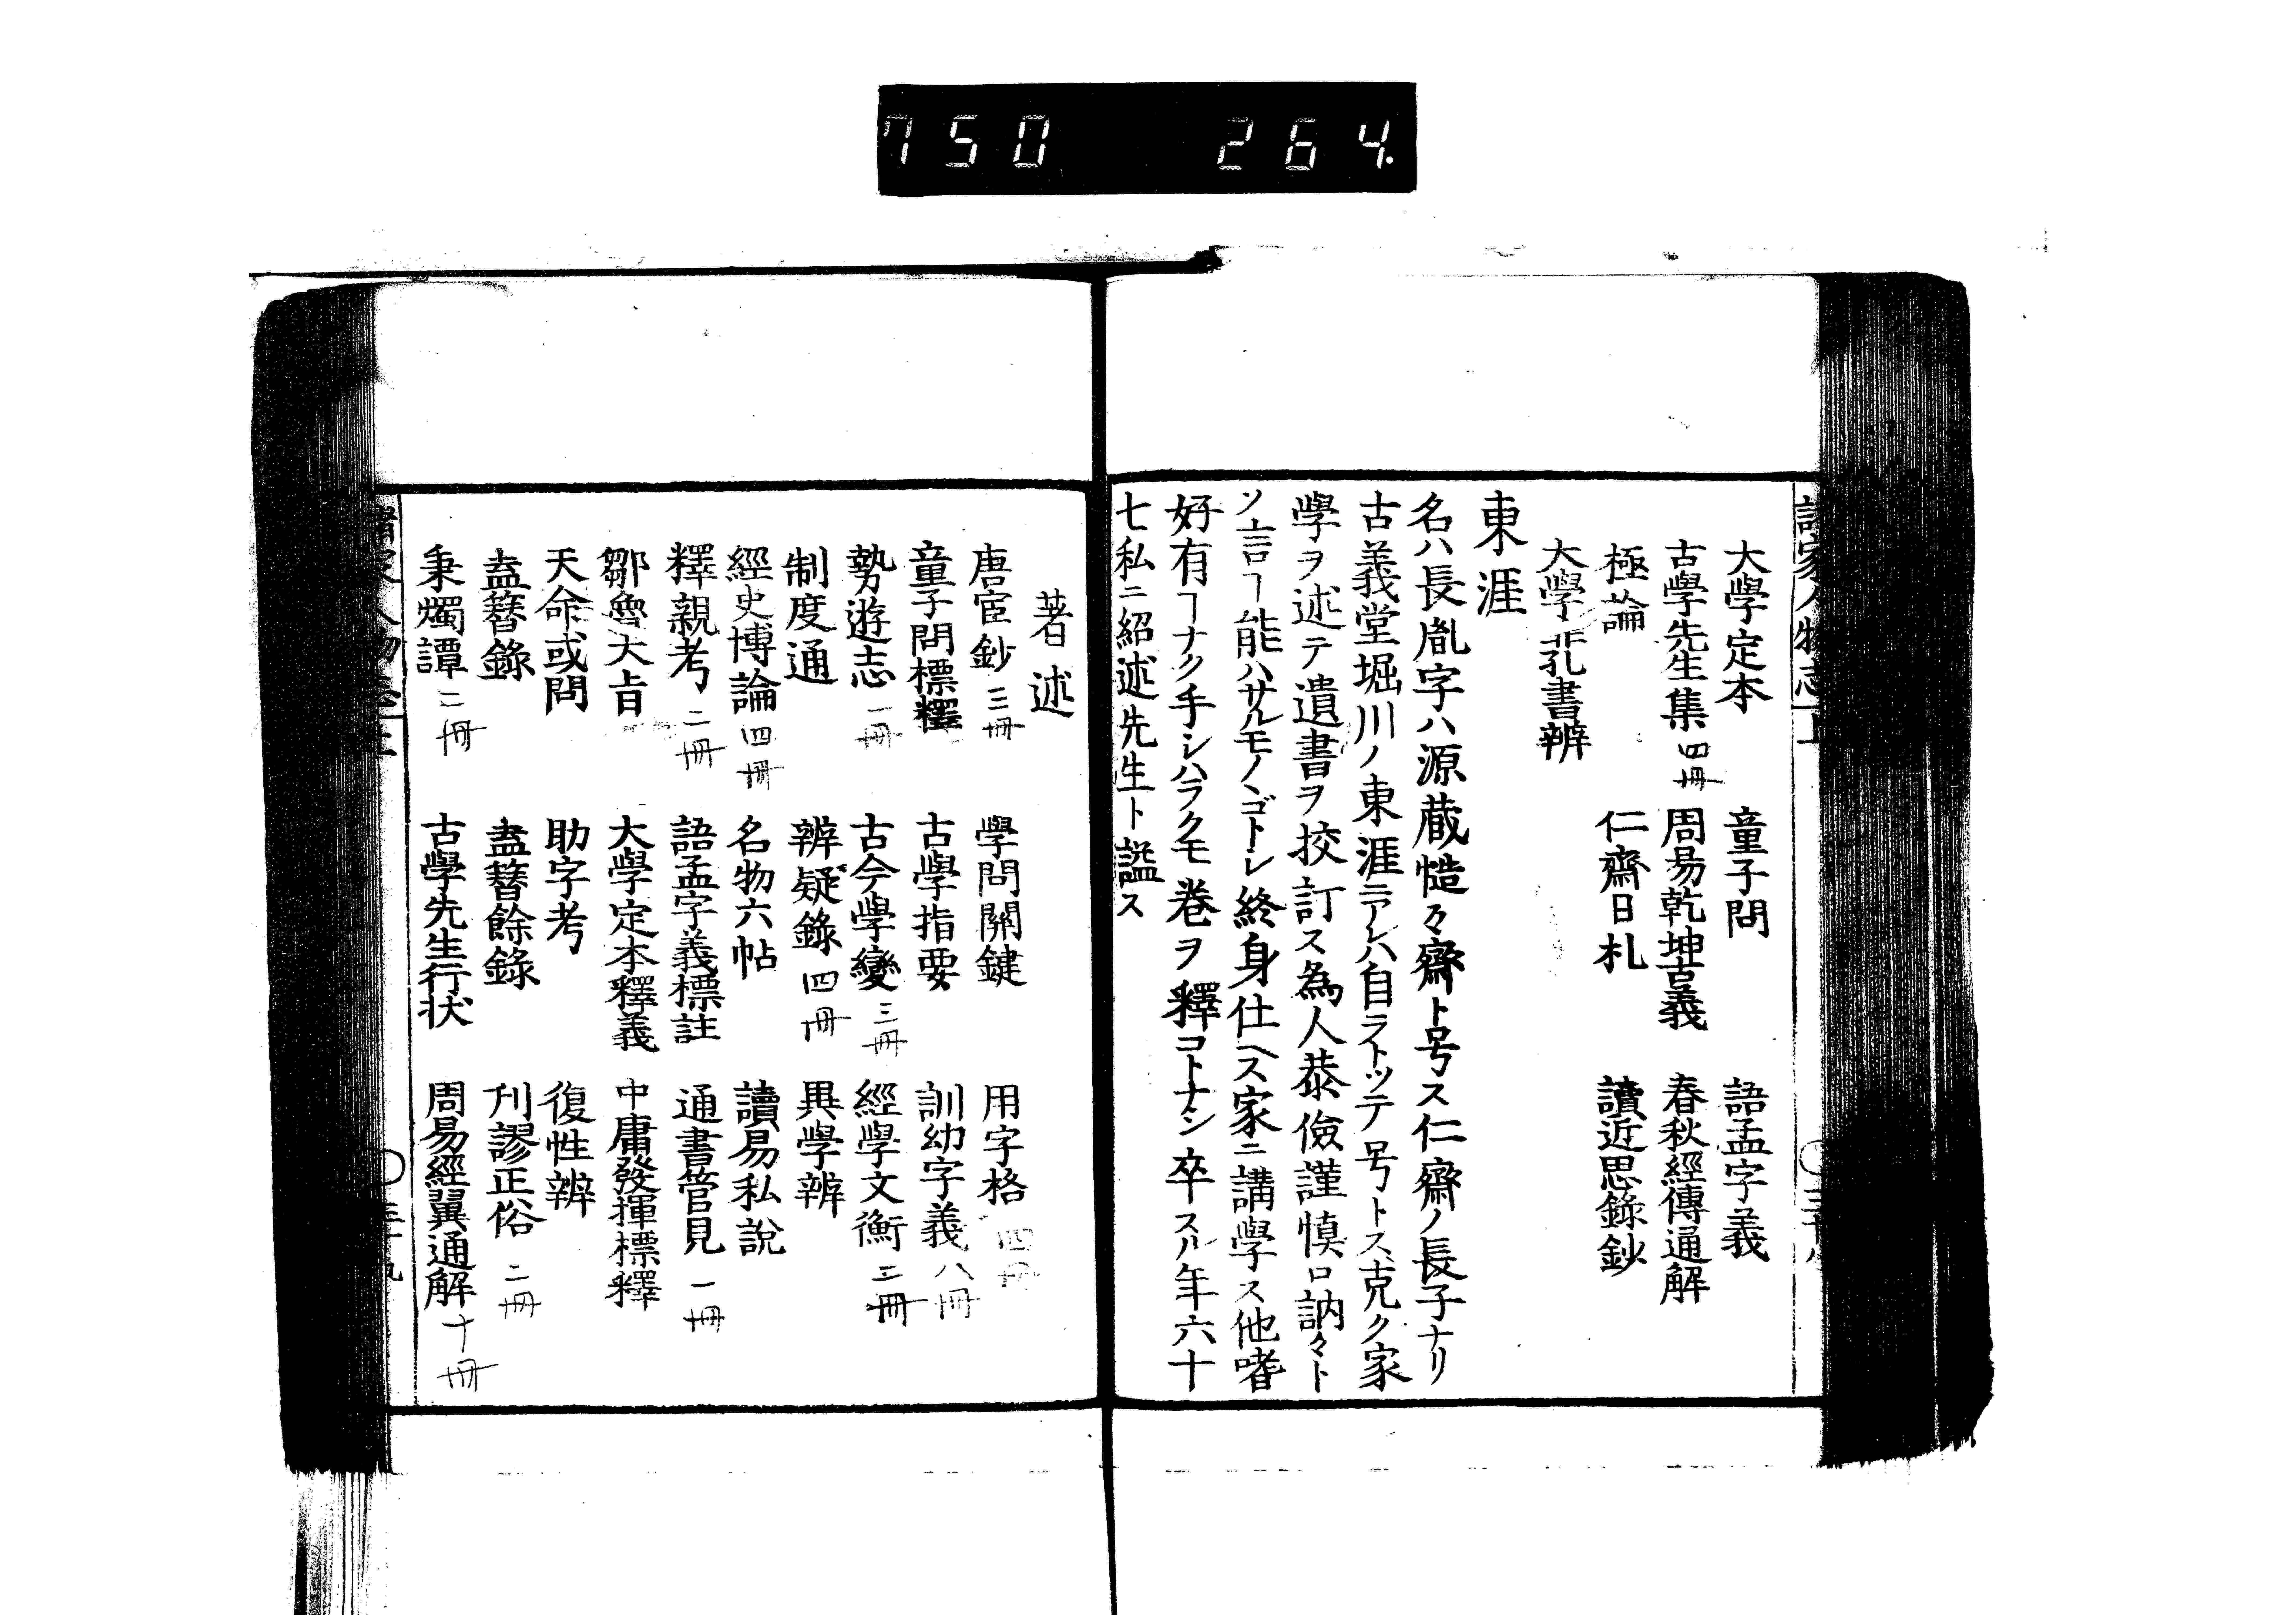 750 264
大學定本 童子問 語孟字義
古學先生集 四冊 周易乾坤古義 春秋經傳通解
極論 仁齋日札 讀近思錄鈔
大學非孔書辨
東涯
名ハ長胤字ハ源蔵慥々齋ト号ス仁齋ノ長子ナリ
古義堂堀川ノ東涯ニアレハ自ラトッテ号トス克ク家
學ヲ述テ遺書ヲ挍訂ス為人恭儉謹慎口訥々ト
ソ言ヿ能ハサルモノヽゴトシ終身仕ヘス家ニ講學ス他嗜
好有ヿナク手シハラクモ巻ヲ釋コトナシ卒スル年六十
七私ニ紹述先生ト謚ス
著述
唐宦鈔 三冊 學問關鍵 用字格 四冊
童子問標釋 古學指要 訓幼字義 八冊
勢遊志 一冊 古今學變 三冊 經學文衡 三冊
制度通 辨疑錄 四冊 異學辨
經史博論 四冊 名物六帖 讀易私說
釋親考 二冊 語孟字義標註 通書管見 一冊
鄒魯大旨 大學定本釋義 中庸發揮標釋
天命或問 助字考 復性辨
盍簪錄 盍簪餘錄 刋謬正俗 二冊
秉燭譚 二冊 古學先生行状 周易經翼通解 十冊